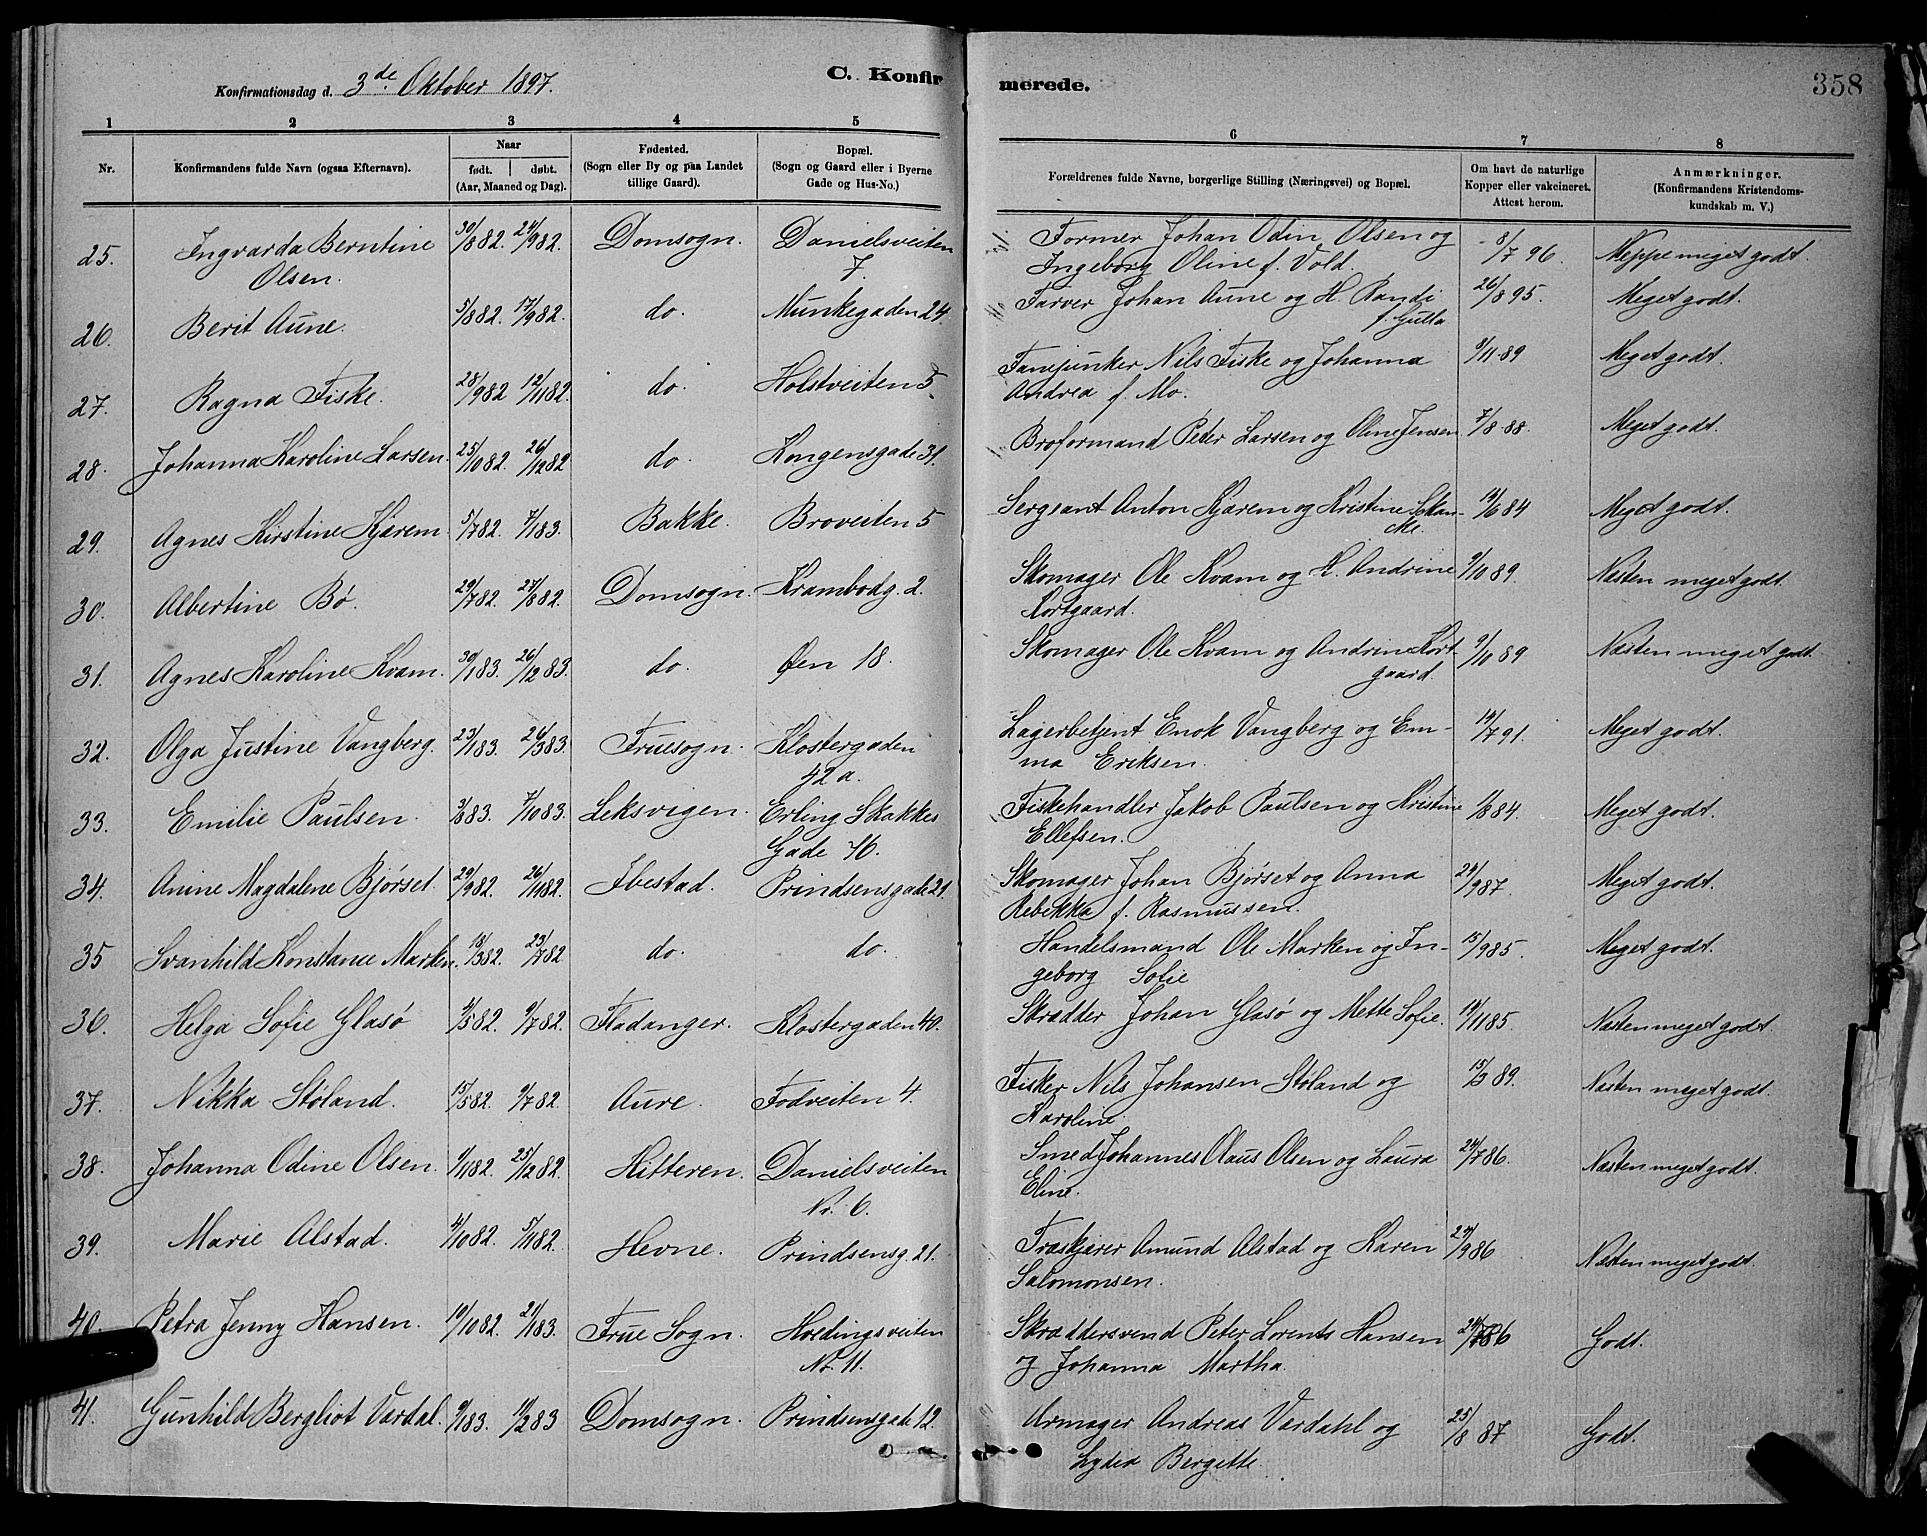 Konfirmationsdag d. 3de Oktober 1897.
C. Konfirmerede.
358
1 2 3 4 5 6 7 8
Nr.
Konfirmandens fulde Navn (ogsaa Efternavn).
Naar
født. døbt.
(Aar, Maaned og Dag).
Fødested.
(Sogn eller By og paa Landet
tillige Gaard).
Bopæl.
(Sogn og Gaard eller i Byerne
Gade og Hus-No.)
Forældrenes fulde Navne, borgerlige Stilling (Næringsvei) og Bopæl.
Om havt de naturlige
Kopper eller vakcineret.
Attest herom.
Anmærkninger.
(Konfirmandens Kristendoms-
kundskab m. V.)
25. Ingvarda Berntine 30/8 82. 24/9 82. Domsogn. Danielsveiten Former Johan Odin Olsen og 8/7 96. Neppe meget godt.
Olsen. 7. Ingeborg Oline f. Vold.
26. Berit Aune. 5/8 82. 17/9 82. do. Munkegaden 24. Farver Johan Aune og H. Randi 26/8 95. Meget godt.
f. Gulla
27. Ragna Fiske. 28/9 82. 12/11 82. do. Holstveiten 5. Fanejunker Nils Fiske og Johanna 9/11 89 Meget godt.
Andrea f. Mo.
28. Johanna Karoline Larsen. 25/10 82. 26/12 82 do. Kongensgade 31. Broformand Peter Larsen og Oline Jensen 7/8 88. Meget godt.
29. Agnes Kirstine Kjærem 5/7 82. 7/1 83. Bakke. Broveiten 5 Sergeant Anton Kjærem og Kristine Skan- 14/6 84 Meget godt.
cke.
30. Albertine Bø. 29/7 82. 27/8 82. Domsogn. Krambodg. 2. Skomager Ole Kvam og H. Andrine 9/10 89. Næsten meget godt.
Kortgaard.
31. Agnes Karoline Kvam. 30/1 83. 26/12 83. do. Øen 18. Skomager Ole Kvam og Andrine Kort 9/10 89 Næsten meget godt.
gaard.
32. Olga Justine Vangberg. 23/1 83. 26/3 83. Fruesogn. Klostergaden Lagerbetjent Enok Vangberg og Em- 14/7 91. Meget godt.
42 a. ma Eriksen.
33. Emilie Paulsen. 3/8 83. 7/10 83. Leksvigen. Erling Skakkes Fiskehandler Jakob Paulsen og Kristine 1/8 84. Meget godt.
Gade 46. Ellefsen.
34. Anine Magdalene Bjørset 29/9 82. 26/11 82. Ibestad. Prindsensgade 21. Skomager Johan Bjørset og Anna 24/9 87. Meget godt.
Rebekka f. Rasmussen.
35 Svanhild Konstance Marken. 18/3 82. 23/7 82 do. do. Handelsmand Ole Marken og In- 15/9 85. Meget godt.
geborg Sofie
36. Helga Sofie Glasø 4/5 82. 9/7 82. Fladanger. Klostergaden 40. Skrædder Johan Glasø og Mette Sofie. 14/11 85. Næsten meget godt.
37. Nikka Støland. 15/5 82. 9/7 82. Aure. Fodveiten 4. Fisker Nils Johansen Støland og 15/3 89. Næsten meget godt.
Karoline.
38. Johanna Odine Olsen. 9/11 82. 25/12 82. Hitteren. Danielsveiten Smed Johannes Olaus Olsen og Laura 24/7 86. Næsten meget godt.
No. 6. Eline.
39. Marie Alstad. 4/10 82. 5/11 82. Hevne. Prindsensg. 21. Træskjærer Amund Alstad og Karen 24/9 86 Næsten meget godt.
Salomonsen.
40. Petra Jenny Hansen. 19/10 82. 21/1 83. Frue Sogn. Hvedingsveiten Skræddersvend Peter Lorents Hansen 24/7 86 Godt.
No. 11. og Johanna Martha.
41. Gunhild Bergliot Vardal. 9/1 83. 11/2 83 Domsogn. Prindsensgade 12. Urmager Andreas Vardahl og 25/8 87 Godt.
Lydia Bergette.